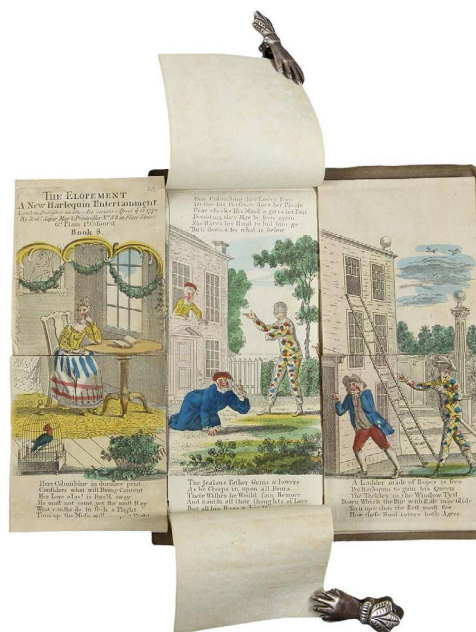 THE ELOPEMENT
A New Harlequin Entertainment
London Publish'd as the Act directs April
By Rob.t Sayer Map & Printseller N.o 53 in Fleet Street
6.d Plain 1.s Colour'd
Book 8.
Here Columbine in durance pent
Considers what will Bring Content
Her Love alas! is forc'd away
He must not come, yet she must Stay
What can she do in such a Plight
Turn up the
Fair Columbine her Lover Sees
his Presence does her Please
Fear checks His Mind & gives her Pain
Doubting they may be seen again
She Waves her Hand to bid him go
Turn down & see what is below
The Jealous Father Grins & lowers
As he Creeps in upon all Fours
Their Wishes he Would fain Remove
And banish all their thoughts of Love
But all his
A Ladder made of Ropes is seen
By Harlequin to gain his Queen
The Tackles to the Window Ty'd
Down Which the Fair with Ease may Glide
Turn up & then the Rest you'll See
How these Fond Lovers both Agree